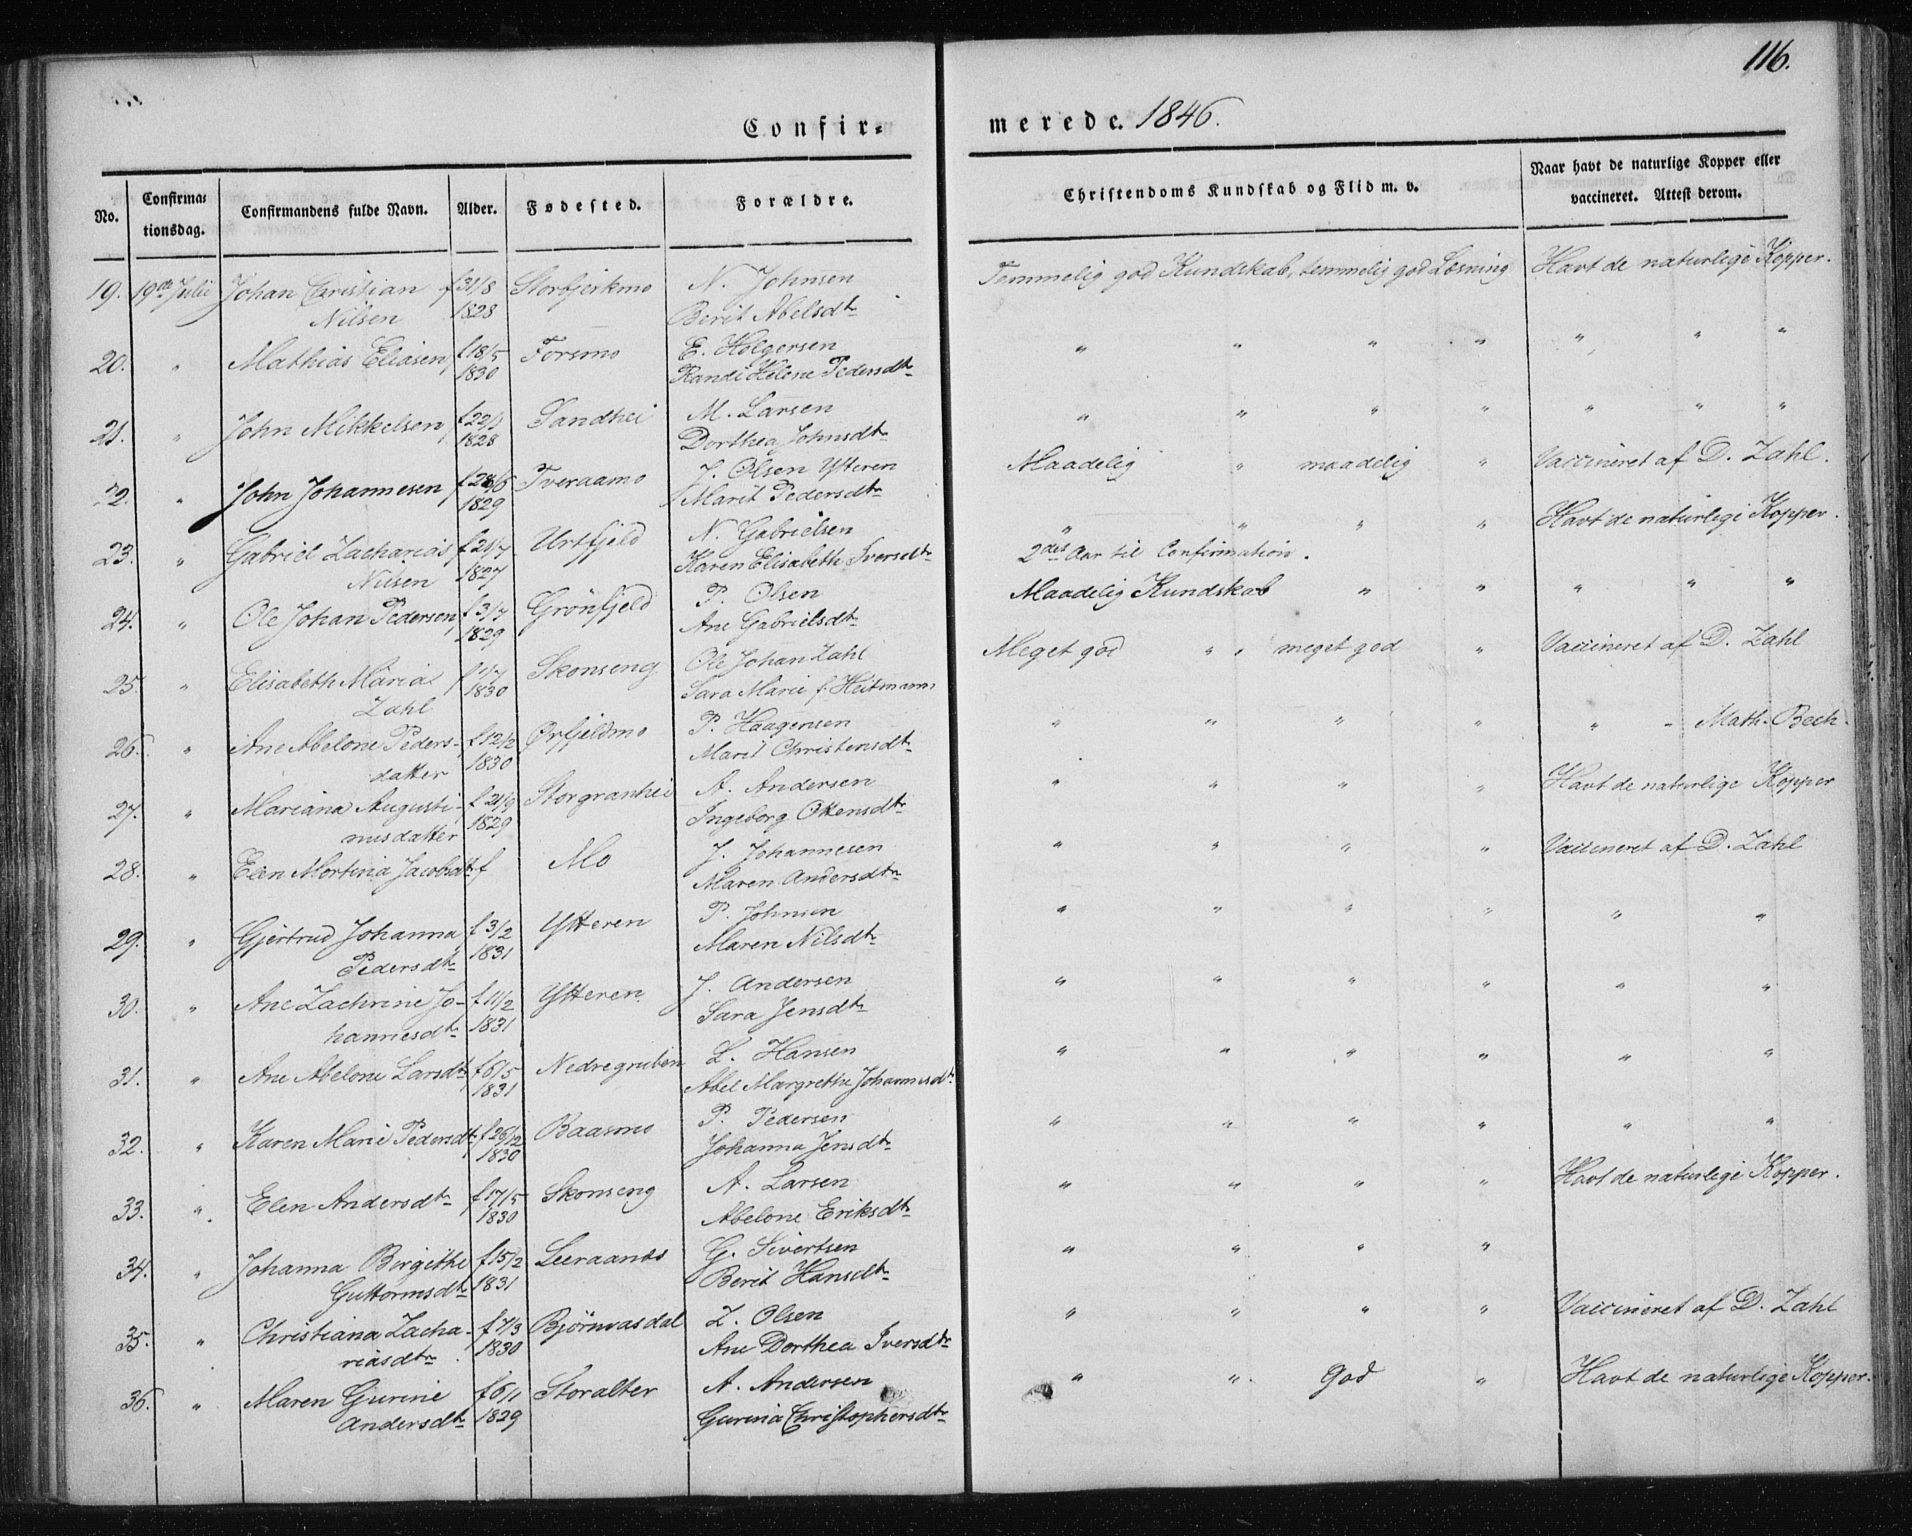 116.
Confir- merede. 1846.
No. Confirmationsdag. Confirmandens fulde Navn. Alder. Fødested. Forældre. Christendoms Kundskab og Flid m. v. Naar havt de naturlige Kopper eller vaccineret. Attest derom.
19. 19de Julii Johan Christian f 31/8 Storfjerkmo N. Johnsen Temmelig god Kundskab, temmelig god Læsning Havt de naturlige Kopper.
Nilsen 1828 Berit Abelsdtr
20. " Mathias Eliasen f 18/5 Forsmo E. Holgersen " " " " " " "
1830 Randi Helene Pedersdtr
21. " John Mikkelsen Sandhei M. Larsen " " " " " " "
1828 Dorthea Johnsdtr
22. " John Johannesen Tveraamo J. Olsen Ytteren Maadelig " maadelig " Vaccineret af D. Zahl.
1829 Marit Pedersdtr
23. " Gabriel Zacharias f 21/7 Urtfjeld N. Gabrielsen " " " " Havt de naturlige Kopper.
Nilsen 1827 Karen Elisabeth Iversdtr 2det Aar til Confirmation.
24. " Ole Johan Pedersen f 3/7 Grönfjeld P. Olsen Maadelig Kundskab " " " " "
1829 Ane Gabrielsdtr
25. " Elisabeth Maria Skonseng Ole Johan Zahl Meget god " " meget god " Vaccineret af D. Zahl
Zahl 1830 Sara Marie f. Heitmann
26. " Ane Abelone Peders- f 12/2 Ørfjeldmo P. Haagensen " " " " " " Math. Bech.
datter 1830 Marit Christensdtr
27. " Mariana Augusti- f 21/9 Storgranhei A. Andersen " " " " Havt de naturlige Kopper
nusdatter 1829 Ingeborg Ottensdtr
28. " Elen Martina Jacobsdtr f Mo J. Johannesen " " " " Vaccineret af D. Zahl
Maren Andersdtr
29. " Gjertrud Johanna f 3/2 Ytteren P. Johnsen " " " " " "
Pedersdtr 1831 Maren Nilsdtr
30. " Ane Zachrine Jo- f 11/2 Ytteren J. Andersen " " " " " "
hannesdtr 1831 Sara Jensdtr
31. " Ane Abelone Larsdtr f 6/5 Nedregruben L. Hansen " " " " " "
1831 Abel Margrethe Johannesdtr
32. " Karen Marie Pedersdtr f 26/12 Baasmo P. Pedersen " " " " " "
1830 Johanna Jensdtr
33. " Elen Andersdtr f 17/5 Skonseng A. Larsen " " " " Havt de naturlige Kopper.
1830 Abelone Eriksdtr
34. " Johanna Birgithe f 15/2 Leeraanes G. Sivertsen " " " "
Guttormsdtr 1831 Berit Hansdtr
35. " Christiana Zacha- f 7/3 Bjørnvasdal Z. Olsen " " " " Vaccineret af D. Zahl
riasdtr 1830 Ane Dorthea Iversdtr
36. " Maren Gurine f 6/1 Storalter A. Andersen " " God " Havt de naturlige Kopper.
Andersdtr 1829 Gurina Christophersdtr